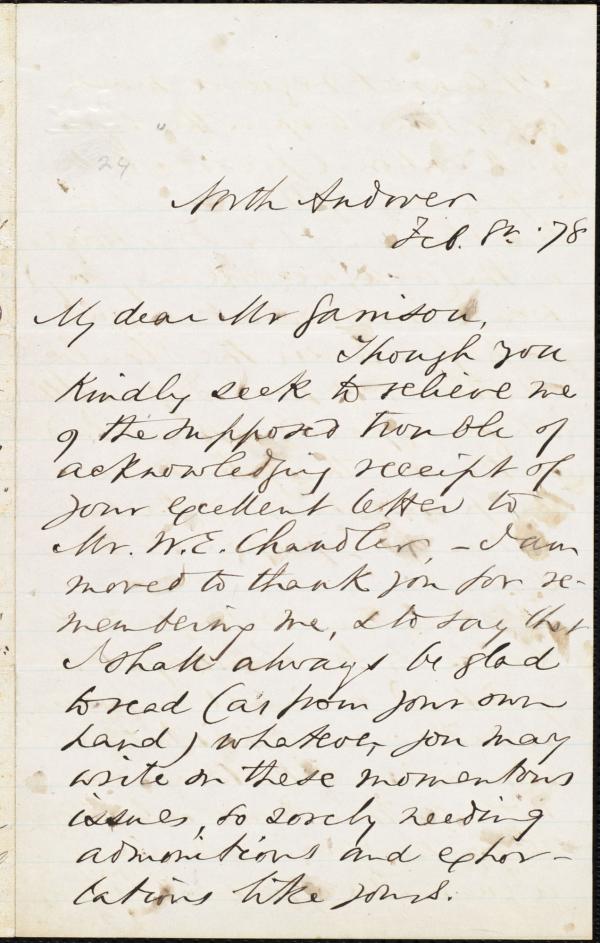 24
North Andover
Feb. 8th '78
My dear Mr Garrison,
Though you
kindly seek to relieve me
of the supposed trouble of
acknowledging receipt of
your excellent letter to
Mr. W. E. Chandler, – I am
moved to thank you for re-
membering me, & to say that
I shall always be glad
to read (as from your own
hand) whatever you may
write on these momentous
issues, so sorely needing
admonitions and exhor-
tations like yours.